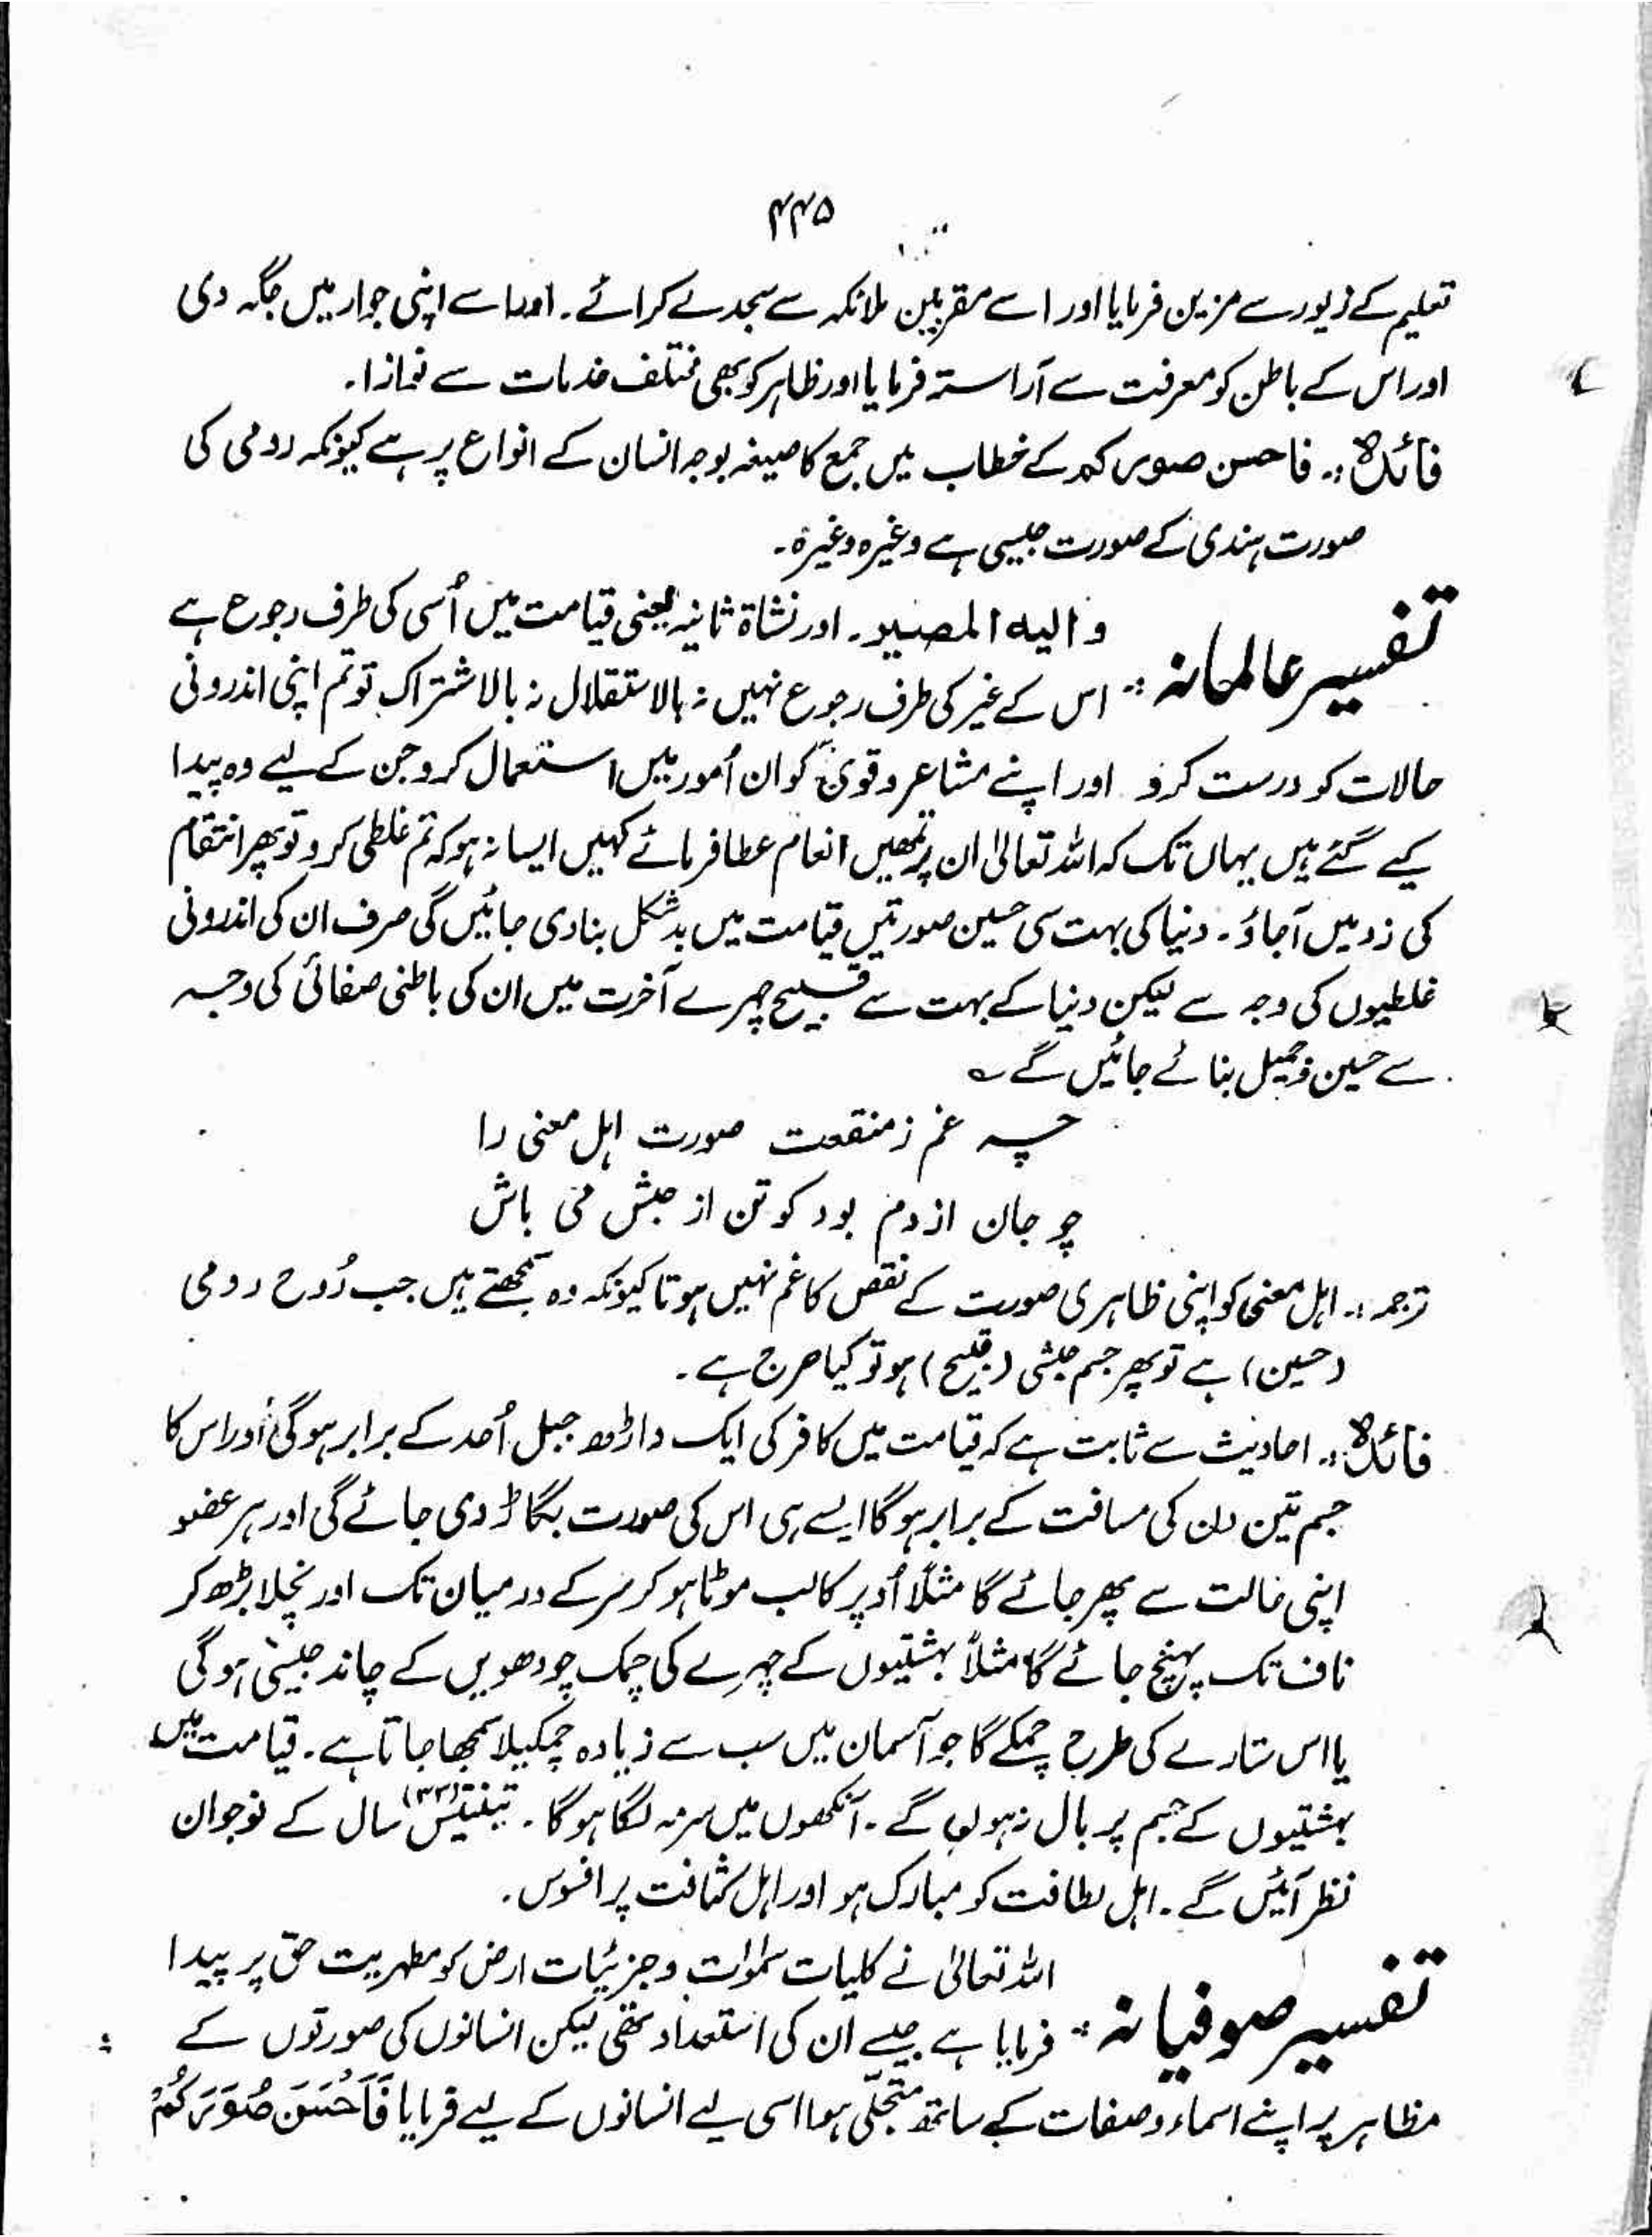 ۴۴۵
تعلیم کے زیور سے مزین فرمایا اور اسے مقربین ملائکہ سے سجدے کرائے۔ اور اسے اپنی جوار میں جگہ دی
اور اس کے باطن کو معرفت سے آراستہ فرمایا اور ظاہر کو بھی مختلف خدمات سے نوازا۔
فائدہ:۔ فاحسن صورکم کے خطاب میں جمع کا صیغہ بوجہ انسان کے انواع پر ہے کیونکہ رومی کی
صورت ہندی کے صورت جیسی ہے وغیرہ وغیرہ۔
تفسیر عالمانہ: والیہ المصیر۔ اور نشاۃ ثانیہ یعنی قیامت میں اُسی کی طرف رجوع ہے
اس کے غیر کی طرف رجوع نہیں نہ بالاستقلال نہ بالاشتراک تو تم اپنی اندرونی
حالات کو درست کرو اور اپنے مشاعر و قویٰ کو ان اُمور میں استعمال کرو جن کے لیے وہ پیدا
کیے گئے ہیں یہاں تک کہ اللہ تعالیٰ ان پر تمھیں انعام عطا فرمائے کہیں ایسا نہ ہو کہ تم غلطی کرو تو پھر انتقام
کی زد میں آجاؤ۔ دنیا کی بہت سی حسین صورتیں قیامت میں بدشکل بنادی جائیں گی صرف ان کی اندرونی
غلطیوں کی وجہ سے لیکن دنیا کے بہت سے قبیح چہرے آخرت میں ان کی باطنی صفائی کی وجہ
سے حسین و جمیل بنائے جائیں گے ؎
چہ غم ز منقعت صورت اہل معنی را
چو جان از دم بود کو تن از حبش می باش
ترجمہ:۔ اہل معنی کو اپنی ظاہری صورت کے نقص کا غم نہیں ہوتا کیونکہ وہ سمجھتے ہیں جب رُوح رومی
(حسین) ہے تو پھر جسم حبشی (قبیح) ہو تو کیا حرج ہے۔
فائدہ:۔ احادیث سے ثابت ہے کہ قیامت میں کافر کی ایک داڑھ جبل اُحد کے برابر ہوگی اور اس کا
جسم تین دن کی مسافت کے برابر ہوگا ایسے ہی اس کی صورت بگاڑ دی جائے گی اور ہر عضو
اپنی حالت سے پھر جائے گا مثلاً اُوپر کا لب موٹا ہو کر سر کے درمیان تک اور نچلا بڑھ کر
ناف تک پہنچ جائے گا مثلاً بہشتیوں کے چہرے کی چمک چودھویں کے چاند جیسی ہوگی
یا اس ستارے کی طرح چمکے گا جو آسمان میں سب سے زیادہ چمکیلا سمجھا جاتا ہے۔ قیامت میں
بہشتیوں کے جسم پر بال نہ ہوں گے۔ آنکھوں میں سرمہ لگا ہوگا۔ تینتیس (۳۳) سال کے نوجوان
نظر آئیں گے۔ اہل لطافت کو مبارک ہو اور اہل کثافت پر افسوس۔
تفسیر صوفیانہ: اللہ تعالیٰ نے کلیات سمٰوات و جزئیات ارض کو مظہریت حق پر پیدا
فرمایا ہے جیسے ان کی استعداد تھی لیکن انسانوں کی صورتوں کے
مظاہر پر اپنے اسماء و صفات کے ساتھ متجلّی ہوا اسی لیے انسانوں کے لیے فرمایا فَاَحْسَنَ صُوَرَكُمْ